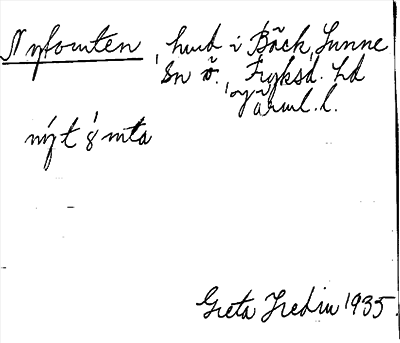 Nytomten, hmd i Bäck, Sunne
sn ö., Fryksd. hd
Värml. l.
nýt ó̜mta
Greta Hedin 1935.